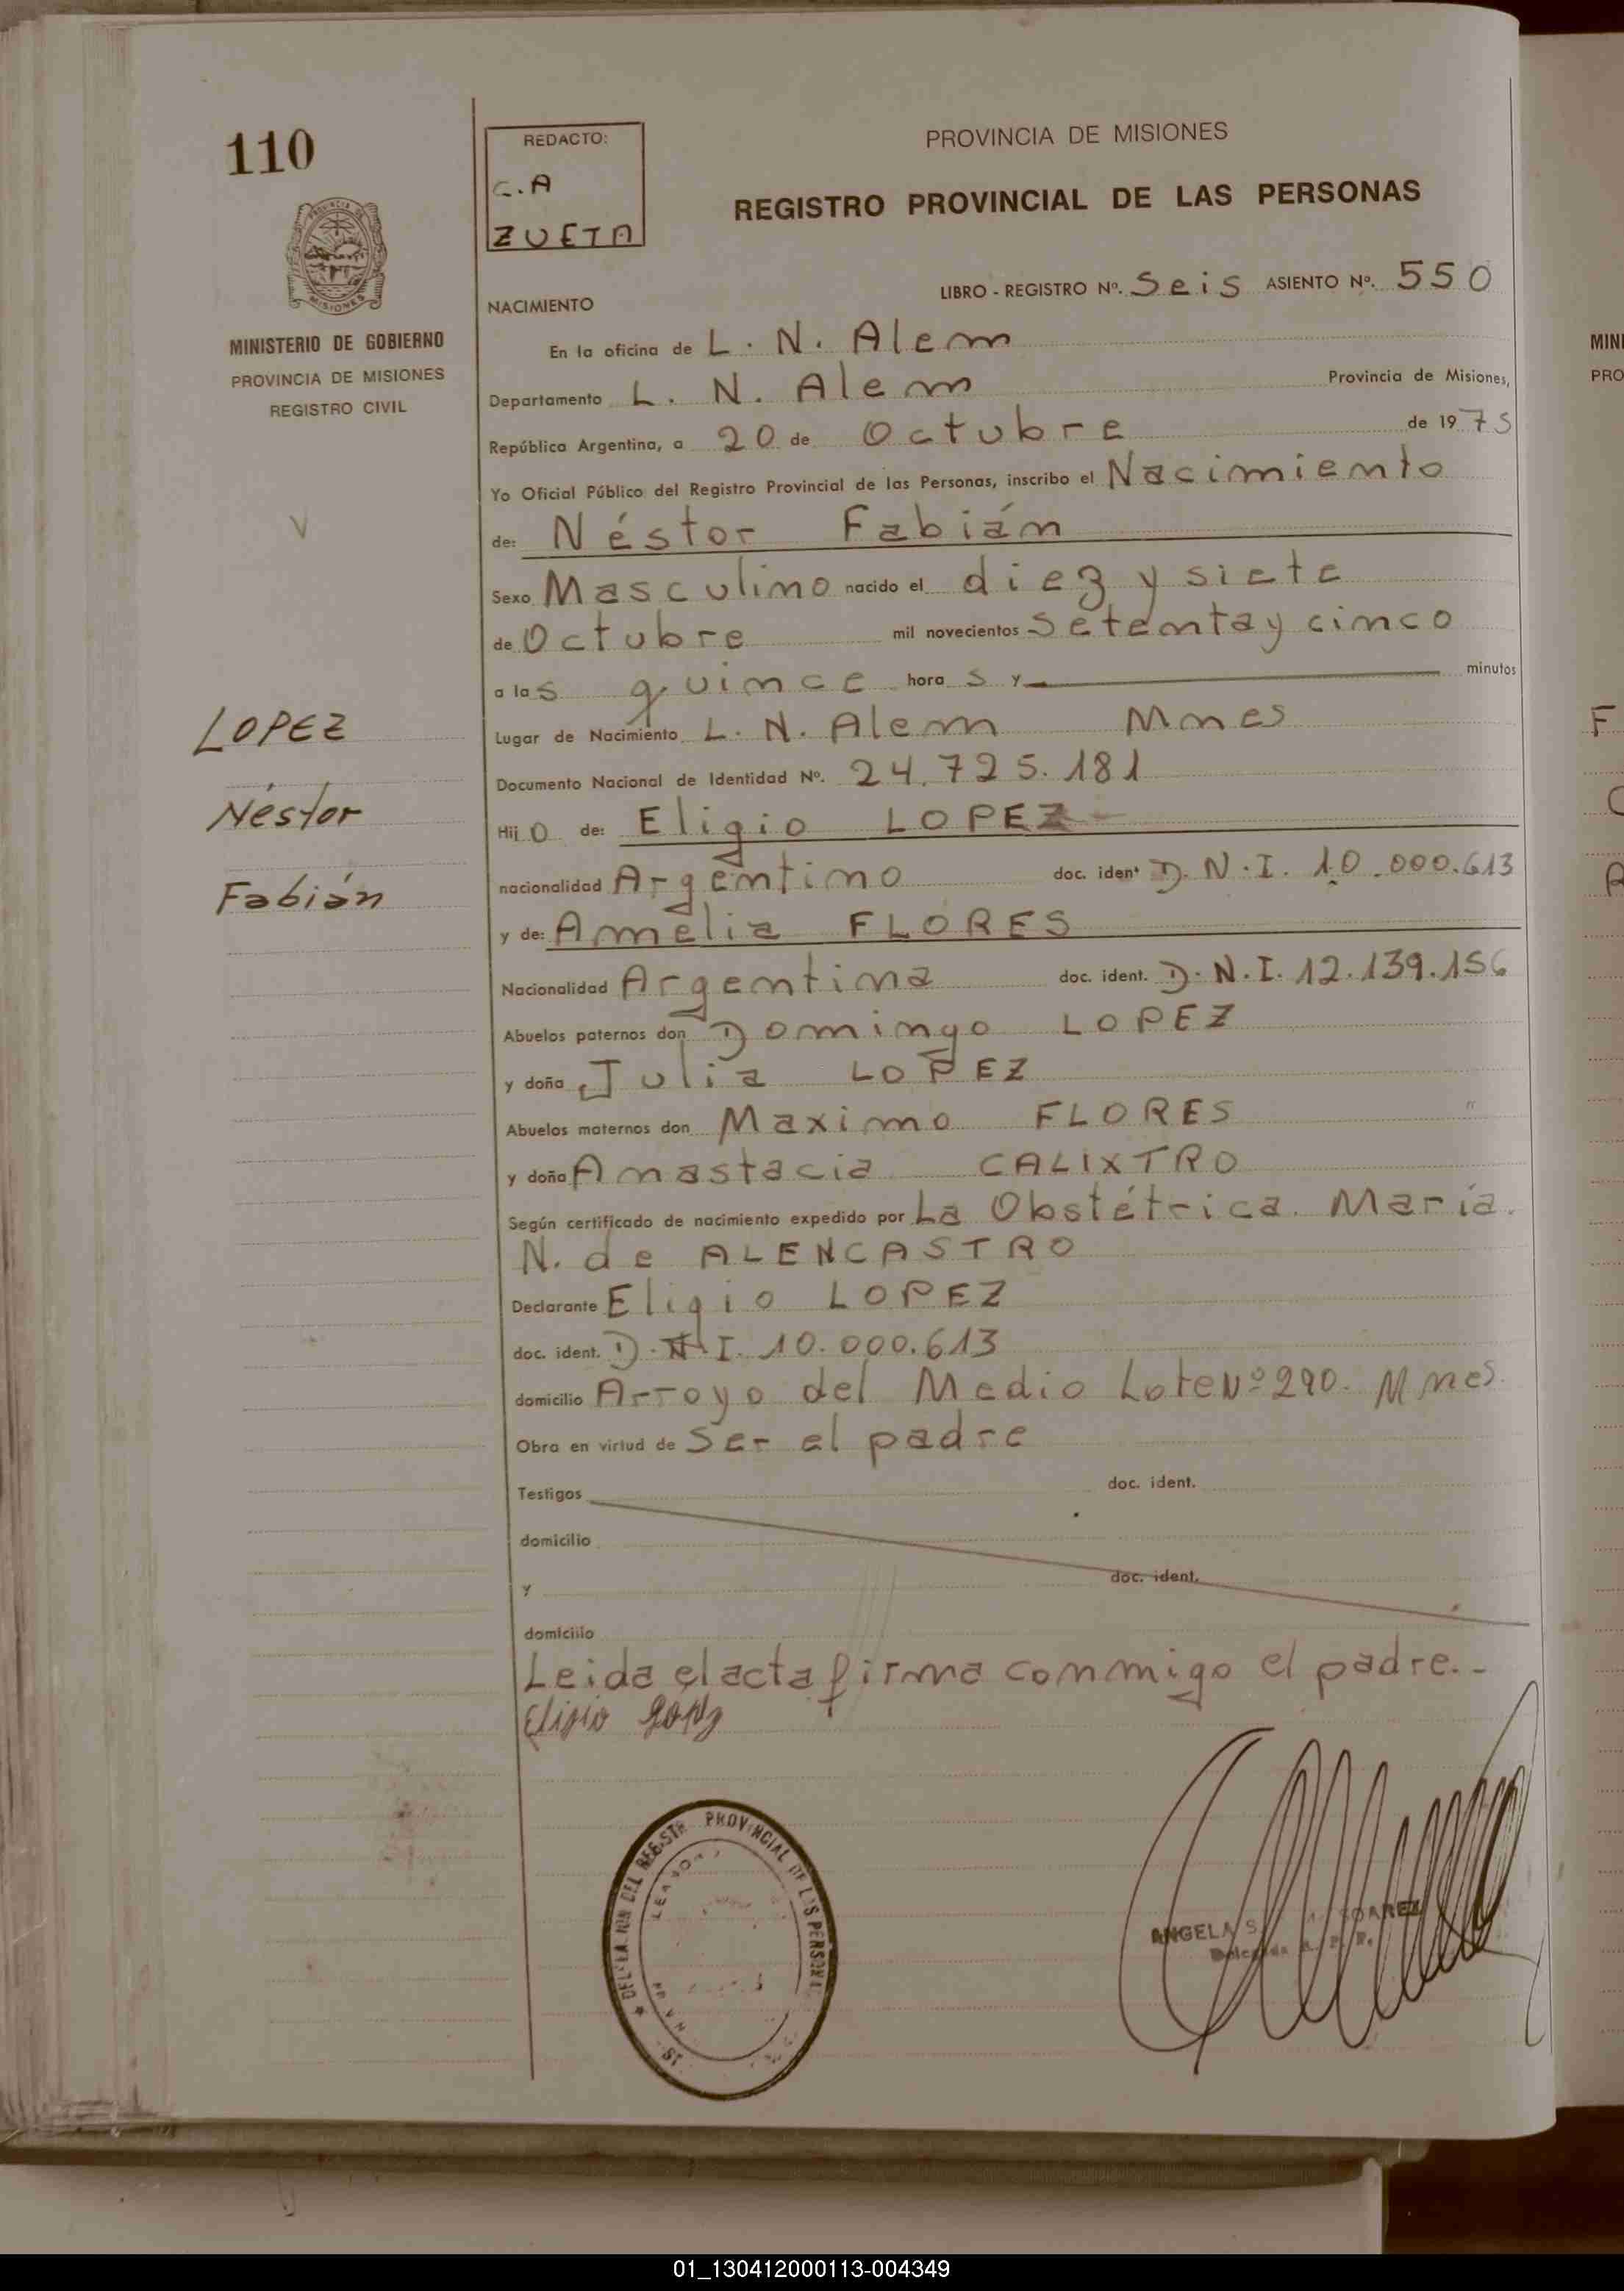 110
REDACTO:
C.A
ZUETA
PROVINCIA DE MISIONES
REGISTRO PROVINCIAL DE LAS PERSONAS
PROVINCIA DE
MISIONES
MINISTERIO DE GOBIERNO
PROVINCIA DE MISIONES
REGISTRO CIVIL
LOPEZ
Néstor
Fabián
LIBRO - REGISTRO Nº. Seis ASIENTO Nº. 550
NACIMIENTO
En la oficina de L. N. Alem
Departamento L. N. Alem Provincia de Misiones,
República Argentina, a 20 de Octubre de 1975
Yo Oficial Público del Registro Provincial de las Personas, inscribo el Nacimiento
de: Néstor Fabián
Sexo Masculino nacido el diez y siete
de Octubre mil novecientos Setenta y cinco
a las quince horas y minutos
Lugar de Nacimiento L. N. Alem Mnes
Documento Nacional de Identidad Nº. 24.725.181
Hijo de: Eligio LOPEZ
nacionalidad Argentino doc. ident D.N.I. 10.000.613
y de: Amelia FLORES
Nacionalidad Argentina doc. ident. D.N.I. 12.139.156
Abuelos paternos don Domingo LOPEZ
y doña Julia LOPEZ
Abuelos maternos don Maximo FLORES
y doña Anastacia CALIXTRO
Según certificado de nacimiento expedido por La Obstétrica. María.
N. de ALENCASTRO
Declarante Eligio LOPEZ
doc. ident. D.N.I. 10.000.613
domicilio Arroyo del Medio Lote Nº 290. Mnes.
Obra en virtud de Ser el padre
Testigos doc. ident.
domicilio
y doc. ident.
domicilio
Leida el acta firma conmigo el padre.-
Eligio
PROVINCIAL DE LAS
ANGELA
MINI
PRO
F
01_130412000113-004349